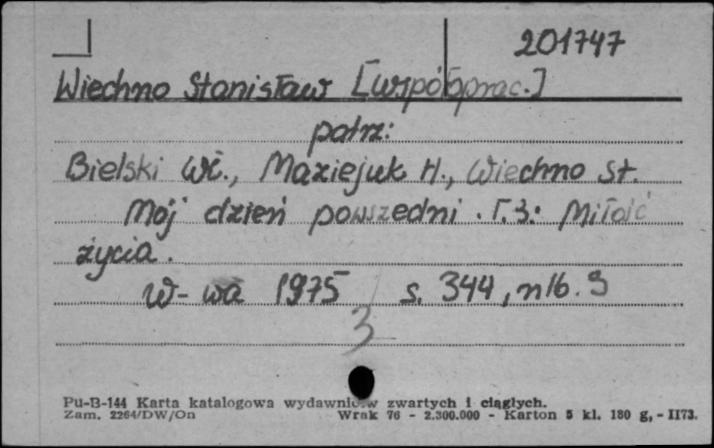 201747
Wiechno Stanisław [współprac.]
patrz:
Bielski Wł., Maziejuk H., Wiechno St.
Mój dzień powszedni. T.3: Miłość
życia.
W-wa 1975 s. 344, nlb. 3
3
Pu-B-144 Karta katalogowa wydawnictw zwartych i ciągłych.
Zam. 2264/DW/On Wrak 76 - 2.300.000 - Karton 5 kl. 180 g, - II73.